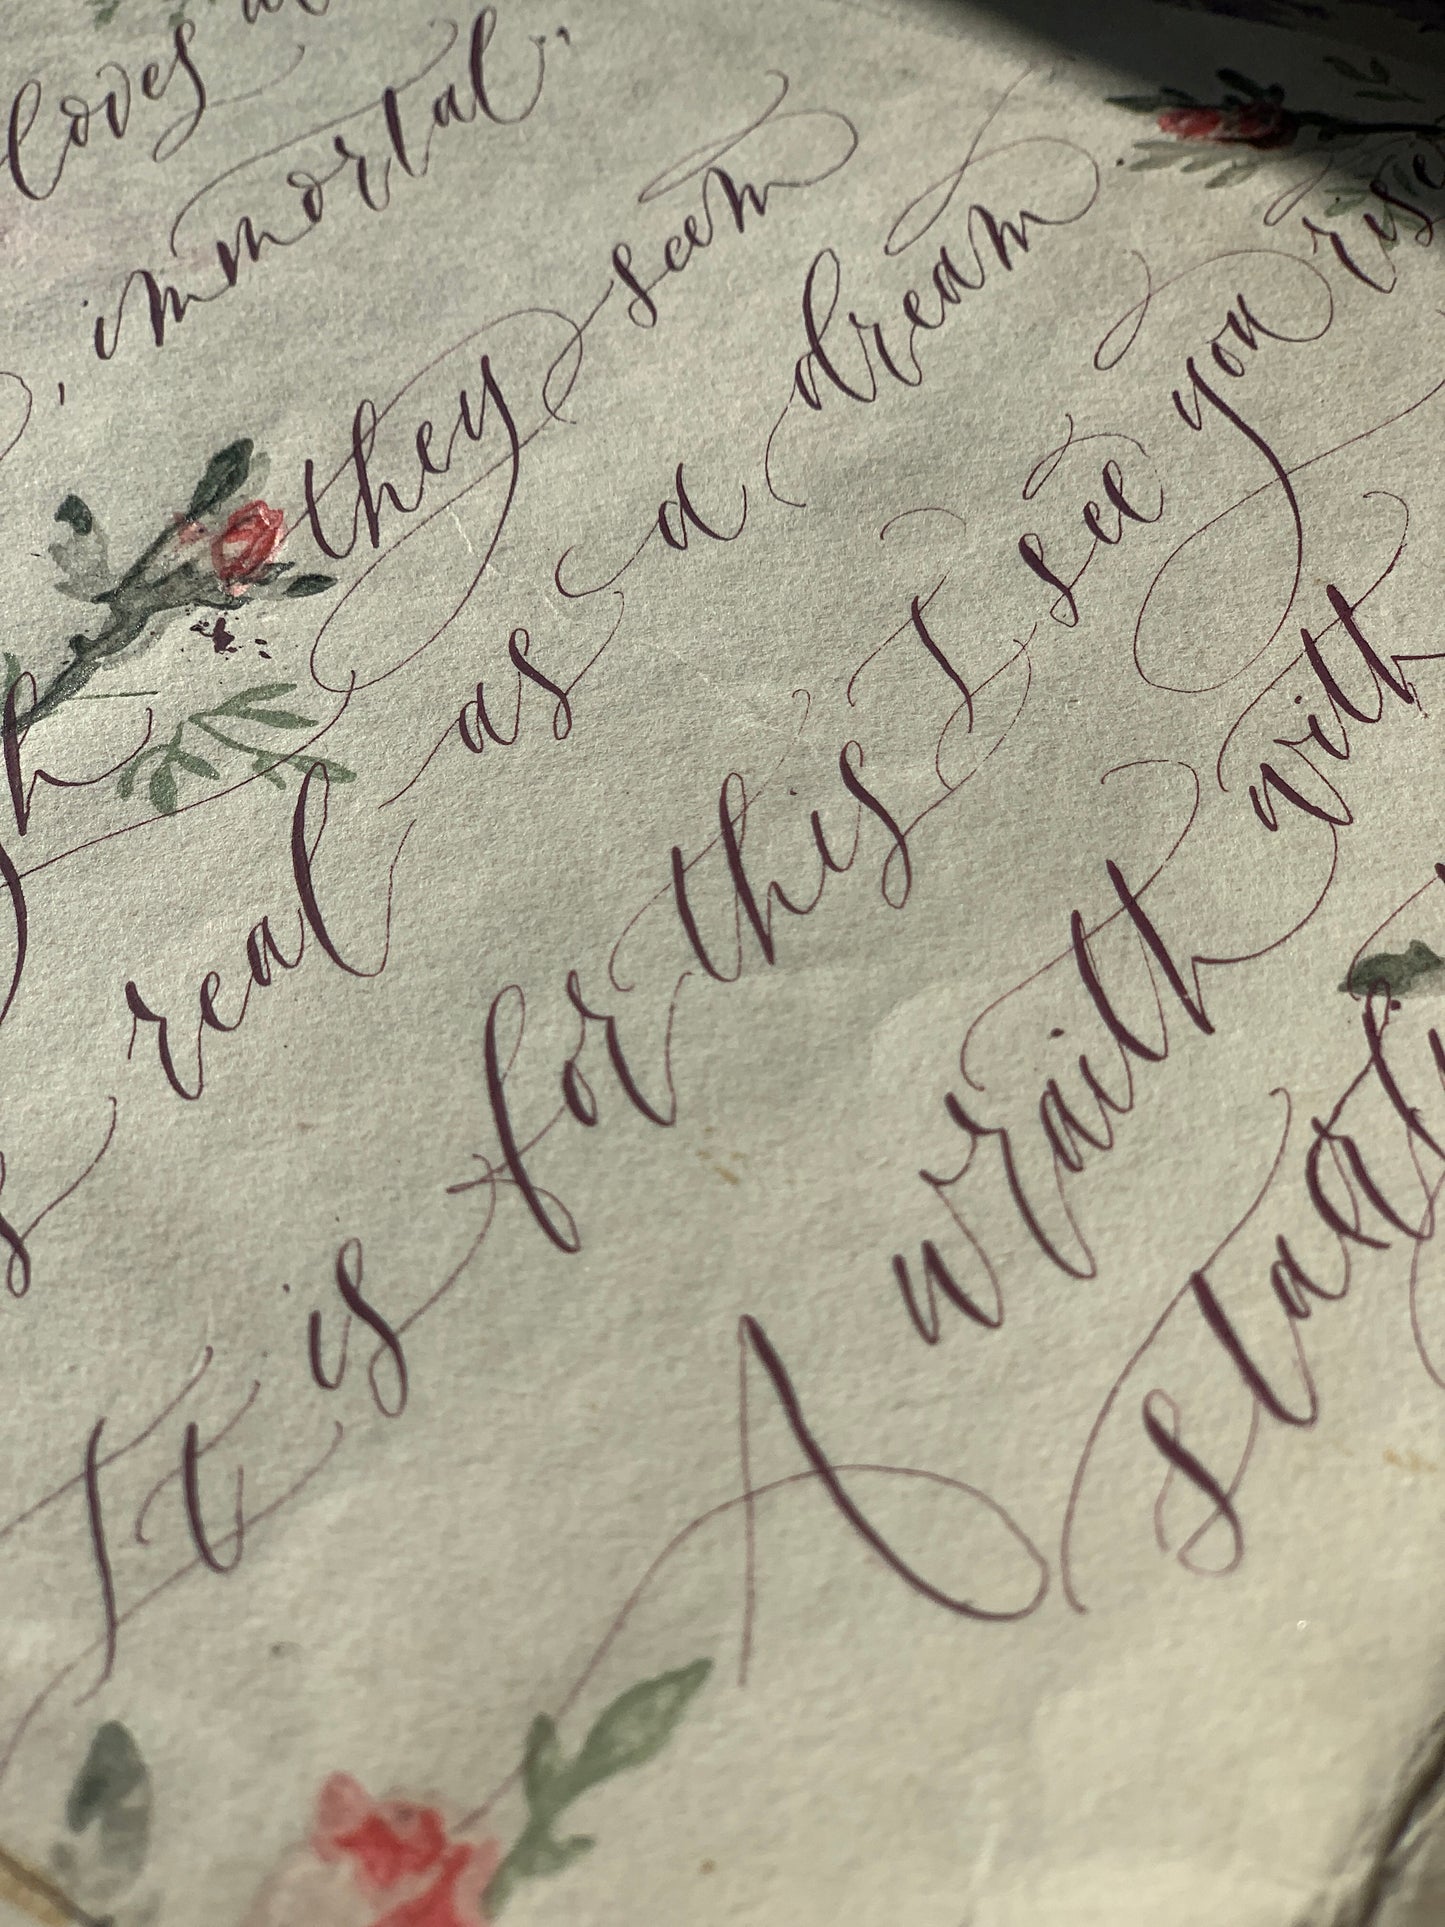 loves
, immortal
they seem
real as a dream
It is for this I see you rise
A wraith with